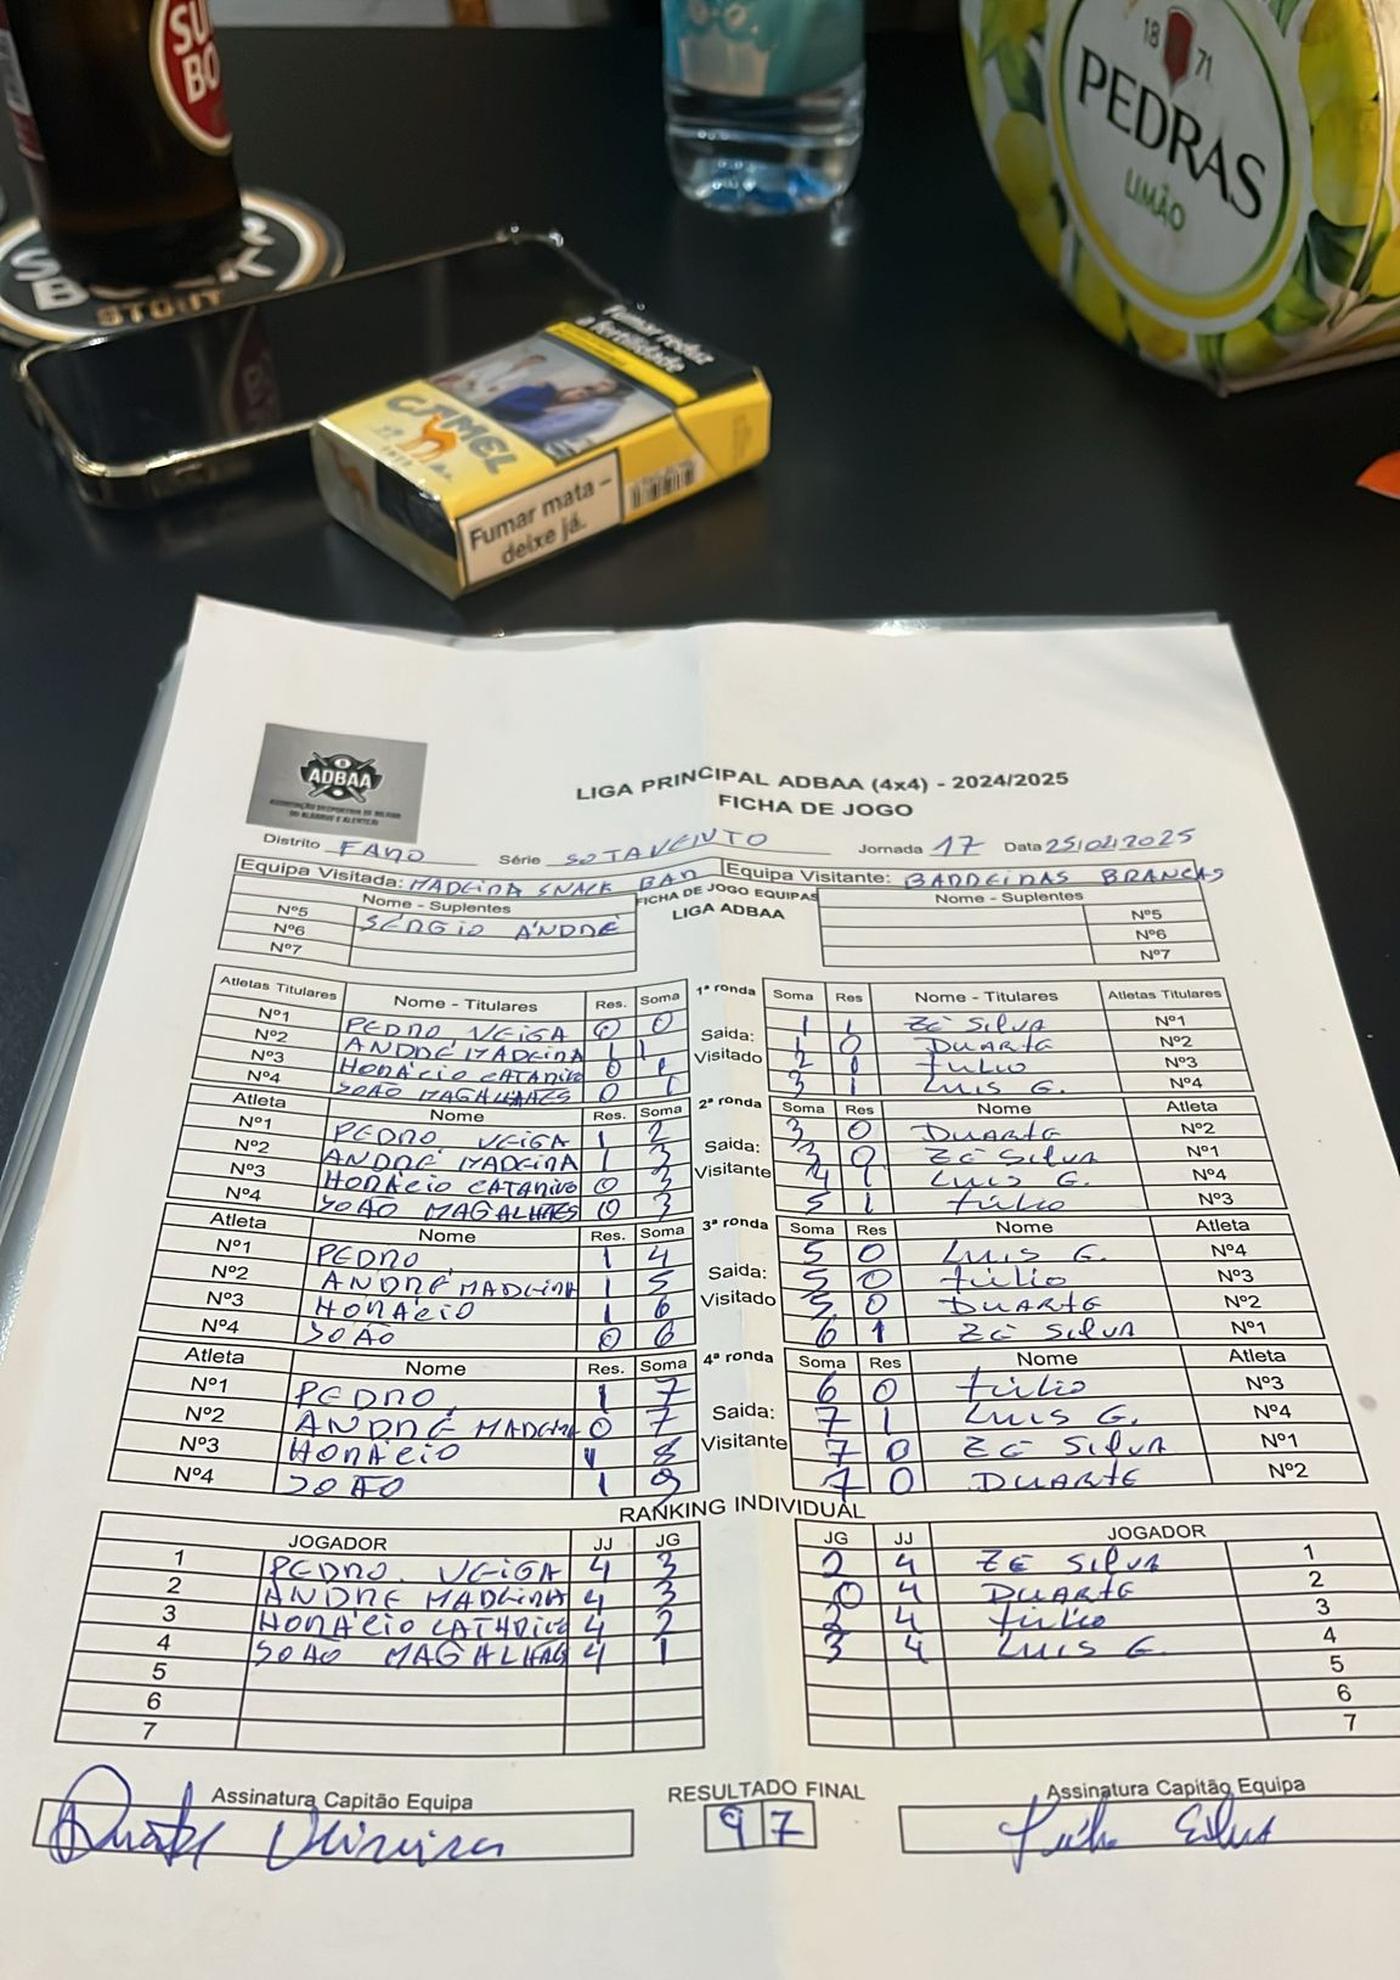 SU
BO
STOUT
1871
PEDRAS
LIMÃO
Fumar reduz
a fertilidade
CAMEL
Fumar mata –
deixe já.
ADBAA
ASSOCIAÇÃO DESPORTIVA DE BILHAR
DO ALGARVE E ALENTEJO
LIGA PRINCIPAL ADBAA (4x4) - 2024/2025
FICHA DE JOGO
Distrito FARO Série SOTAVENTO Jornada 17 Data 25/02/2025
Equipa Visitada: MADEIRA SNACK BAR Equipa Visitante: BARREIRAS BRANCAS
Nome - Suplentes FICHA DE JOGO EQUIPAS Nome - Suplentes
Nº5 SÉRGIO ANDRÉ LIGA ADBAA Nº5
Nº6 Nº6
Nº7 Nº7
Atletas Titulares Nome - Titulares Res. Soma 1ª ronda Soma Res Nome - Titulares Atletas Titulares
Nº1 PEDRO VEIGA 0 0 Saida: 1 1 ZÉ SILVA Nº1
Nº2 ANDRÉ MADEIRA 1 1 Visitado 1 0 DUARTE Nº2
Nº3 HORÁCIO CATARINO 0 1 2 1 TÚLIO Nº3
Nº4 JOÃO MAGALHÃES 0 1 3 1 LUIS G. Nº4
Atleta Nome Res. Soma 2ª ronda Soma Res Nome Atleta
Nº1 PEDRO VEIGA 1 2 Saida: 3 0 DUARTE Nº2
Nº2 ANDRÉ MADEIRA 1 3 Visitante 3 0 ZÉ SILVA Nº1
Nº3 HORÁCIO CATARINO 0 3 4 1 LUIS G. Nº4
Nº4 JOÃO MAGALHÃES 0 3 5 1 TÚLIO Nº3
Atleta Nome Res. Soma 3ª ronda Soma Res Nome Atleta
Nº1 PEDRO 1 4 Saida: 5 0 LUIS G. Nº4
Nº2 ANDRÉ MADEIRA 1 5 Visitado 5 0 TÚLIO Nº3
Nº3 HORÁCIO 1 6 5 0 DUARTE Nº2
Nº4 JOÃO 0 6 6 1 ZÉ SILVA Nº1
Atleta Nome Res. Soma 4ª ronda Soma Res Nome Atleta
Nº1 PEDRO 1 7 Saida: 6 0 TÚLIO Nº3
Nº2 ANDRÉ MADEIRA 0 7 Visitante 7 1 LUIS G. Nº4
Nº3 HORÁCIO 1 8 7 0 ZÉ SILVA Nº1
Nº4 JOÃO 1 9 7 0 DUARTE Nº2
RANKING INDIVIDUAL
JOGADOR JJ JG JG JJ JOGADOR
1 PEDRO VEIGA 4 3 2 4 ZÉ SILVA 1
2 ANDRÉ MADEIRA 4 3 0 4 DUARTE 2
3 HORÁCIO 4 2 2 4 TÚLIO 3
4 JOÃO MAGALHÃES 4 1 3 4 LUIS G. 4
5 5
6 6
7 7
Assinatura Capitão Equipa RESULTADO FINAL Assinatura Capitão Equipa
9 7